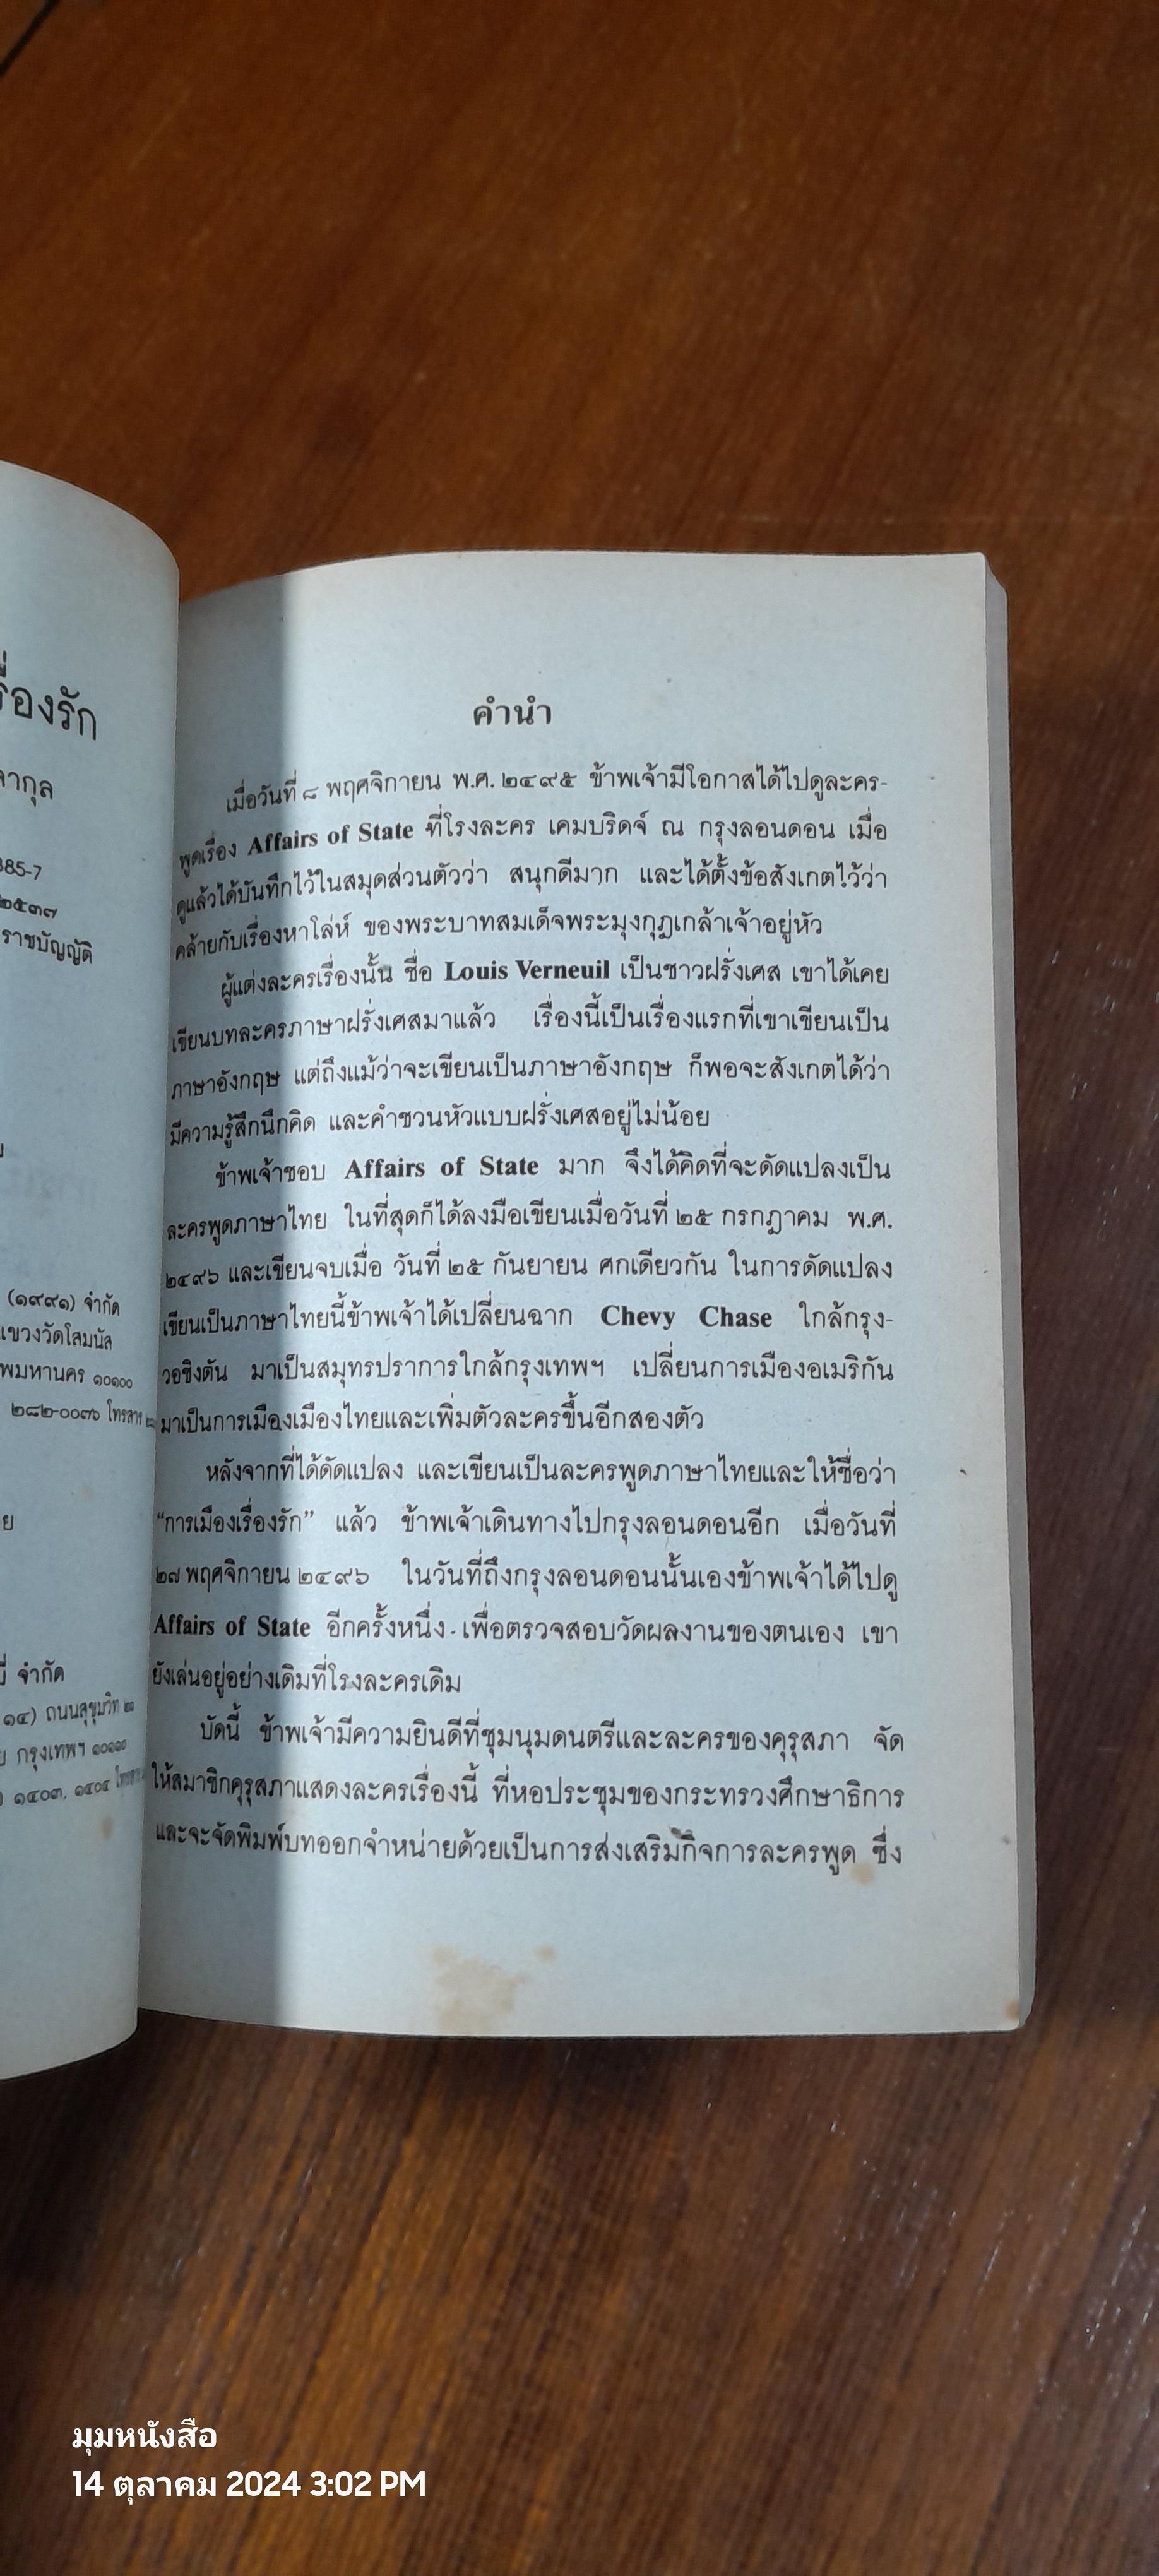 รื่องรัก
ากุล
385-7
๒๕๓๗
ราชบัญญัติ
(๑๙๙๑) จำกัด
แขวงวัดโสมนัส
พมหานคร ๑๐๑๐๐
๒๘๒-๐๐๓๖ โทรสาร
ย
จำกัด
๑๔) ถนนสุขุมวิท
กรุงเทพฯ ๑๐๑๑๐
๑๔๐๓, ๑๔๐๔
คำนำ
เมื่อวันที่ ๘ พฤศจิกายน พ.ศ. ๒๔๙๕ ข้าพเจ้ามีโอกาสได้ไปดูละคร-
พูดเรื่อง Affairs of State ที่โรงละคร เคมบริดจ์ ณ กรุงลอนดอน เมื่อ
ดูแล้วได้บันทึกไว้ในสมุดส่วนตัวว่า สนุกดีมาก และได้ตั้งข้อสังเกตไว้ว่า
คล้ายกับเรื่องหาโล่ห์ ของพระบาทสมเด็จพระมงกุฎเกล้าเจ้าอยู่หัว
ผู้แต่งละครเรื่องนั้น ชื่อ Louis Verneuil เป็นชาวฝรั่งเศส เขาได้เคย
เขียนบทละครภาษาฝรั่งเศสมาแล้ว เรื่องนี้เป็นเรื่องแรกที่เขาเขียนเป็น
ภาษาอังกฤษ แต่ถึงแม้ว่าจะเขียนเป็นภาษาอังกฤษ ก็พอจะสังเกตได้ว่า
มีความรู้สึกนึกคิด และคำชวนหัวแบบฝรั่งเศสอยู่ไม่น้อย
ข้าพเจ้าชอบ Affairs of State มาก จึงได้คิดที่จะดัดแปลงเป็น
ละครพูดภาษาไทย ในที่สุดก็ได้ลงมือเขียนเมื่อวันที่ ๒๕ กรกฎาคม พ.ศ.
๒๔๙๖ และเขียนจบเมื่อ วันที่ ๒๕ กันยายน ศกเดียวกัน ในการดัดแปลง
เขียนเป็นภาษาไทยนี้ข้าพเจ้าได้เปลี่ยนฉาก Chevy Chase ใกล้กรุง-
วอชิงตัน มาเป็นสมุทรปราการใกล้กรุงเทพฯ เปลี่ยนการเมืองอเมริกัน
มาเป็นการเมืองเมืองไทยและเพิ่มตัวละครขึ้นอีกสองตัว
หลังจากที่ได้ดัดแปลง และเขียนเป็นละครพูดภาษาไทยและให้ชื่อว่า
“การเมืองเรื่องรัก” แล้ว ข้าพเจ้าเดินทางไปกรุงลอนดอนอีก เมื่อวันที่
๒๗ พฤศจิกายน ๒๔๙๖ ในวันที่ถึงกรุงลอนดอนนั้นเองข้าพเจ้าได้ไปดู
Affairs of State อีกครั้งหนึ่ง เพื่อตรวจสอบวัดผลงานของตนเอง เขา
ยังเล่นอยู่อย่างเดิมที่โรงละครเดิม
บัดนี้ ข้าพเจ้ามีความยินดีที่ชุมนุมดนตรีและละครของคุรุสภา จัด
ให้สมาชิกคุรุสภาแสดงละครเรื่องนี้ ที่หอประชุมของกระทรวงศึกษาธิการ
และจะจัดพิมพ์บทออกจำหน่ายด้วยเป็นการส่งเสริมกิจการละครพูด ซึ่ง
มุมหนังสือ
14 ตุลาคม 2024 3:02 PM